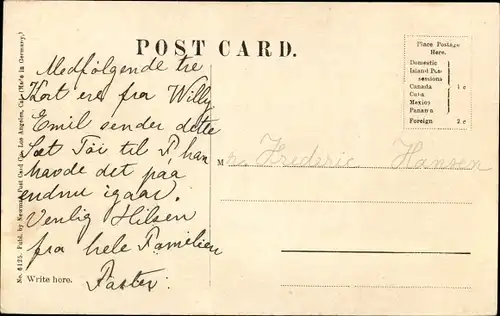 POST CARD.
Place Postage
Here.
Domestic
Island Pos-
sessions
Canada 1 c
Cuba
Mexico
Panama
Foreign 2 c
Medfølgende tre
Kort ere fra Willy
Emil sender dette
Sæt Tøi til P. han
havde det paa
endnu igaar.
Venlig Hilsen
fra hele Familien
Faster.
Mr. Frederic Hansen
Write here.
No. 6125. Publ. by Newman Post Card Co., Los Angeles, Cal. (Made in Germany.)